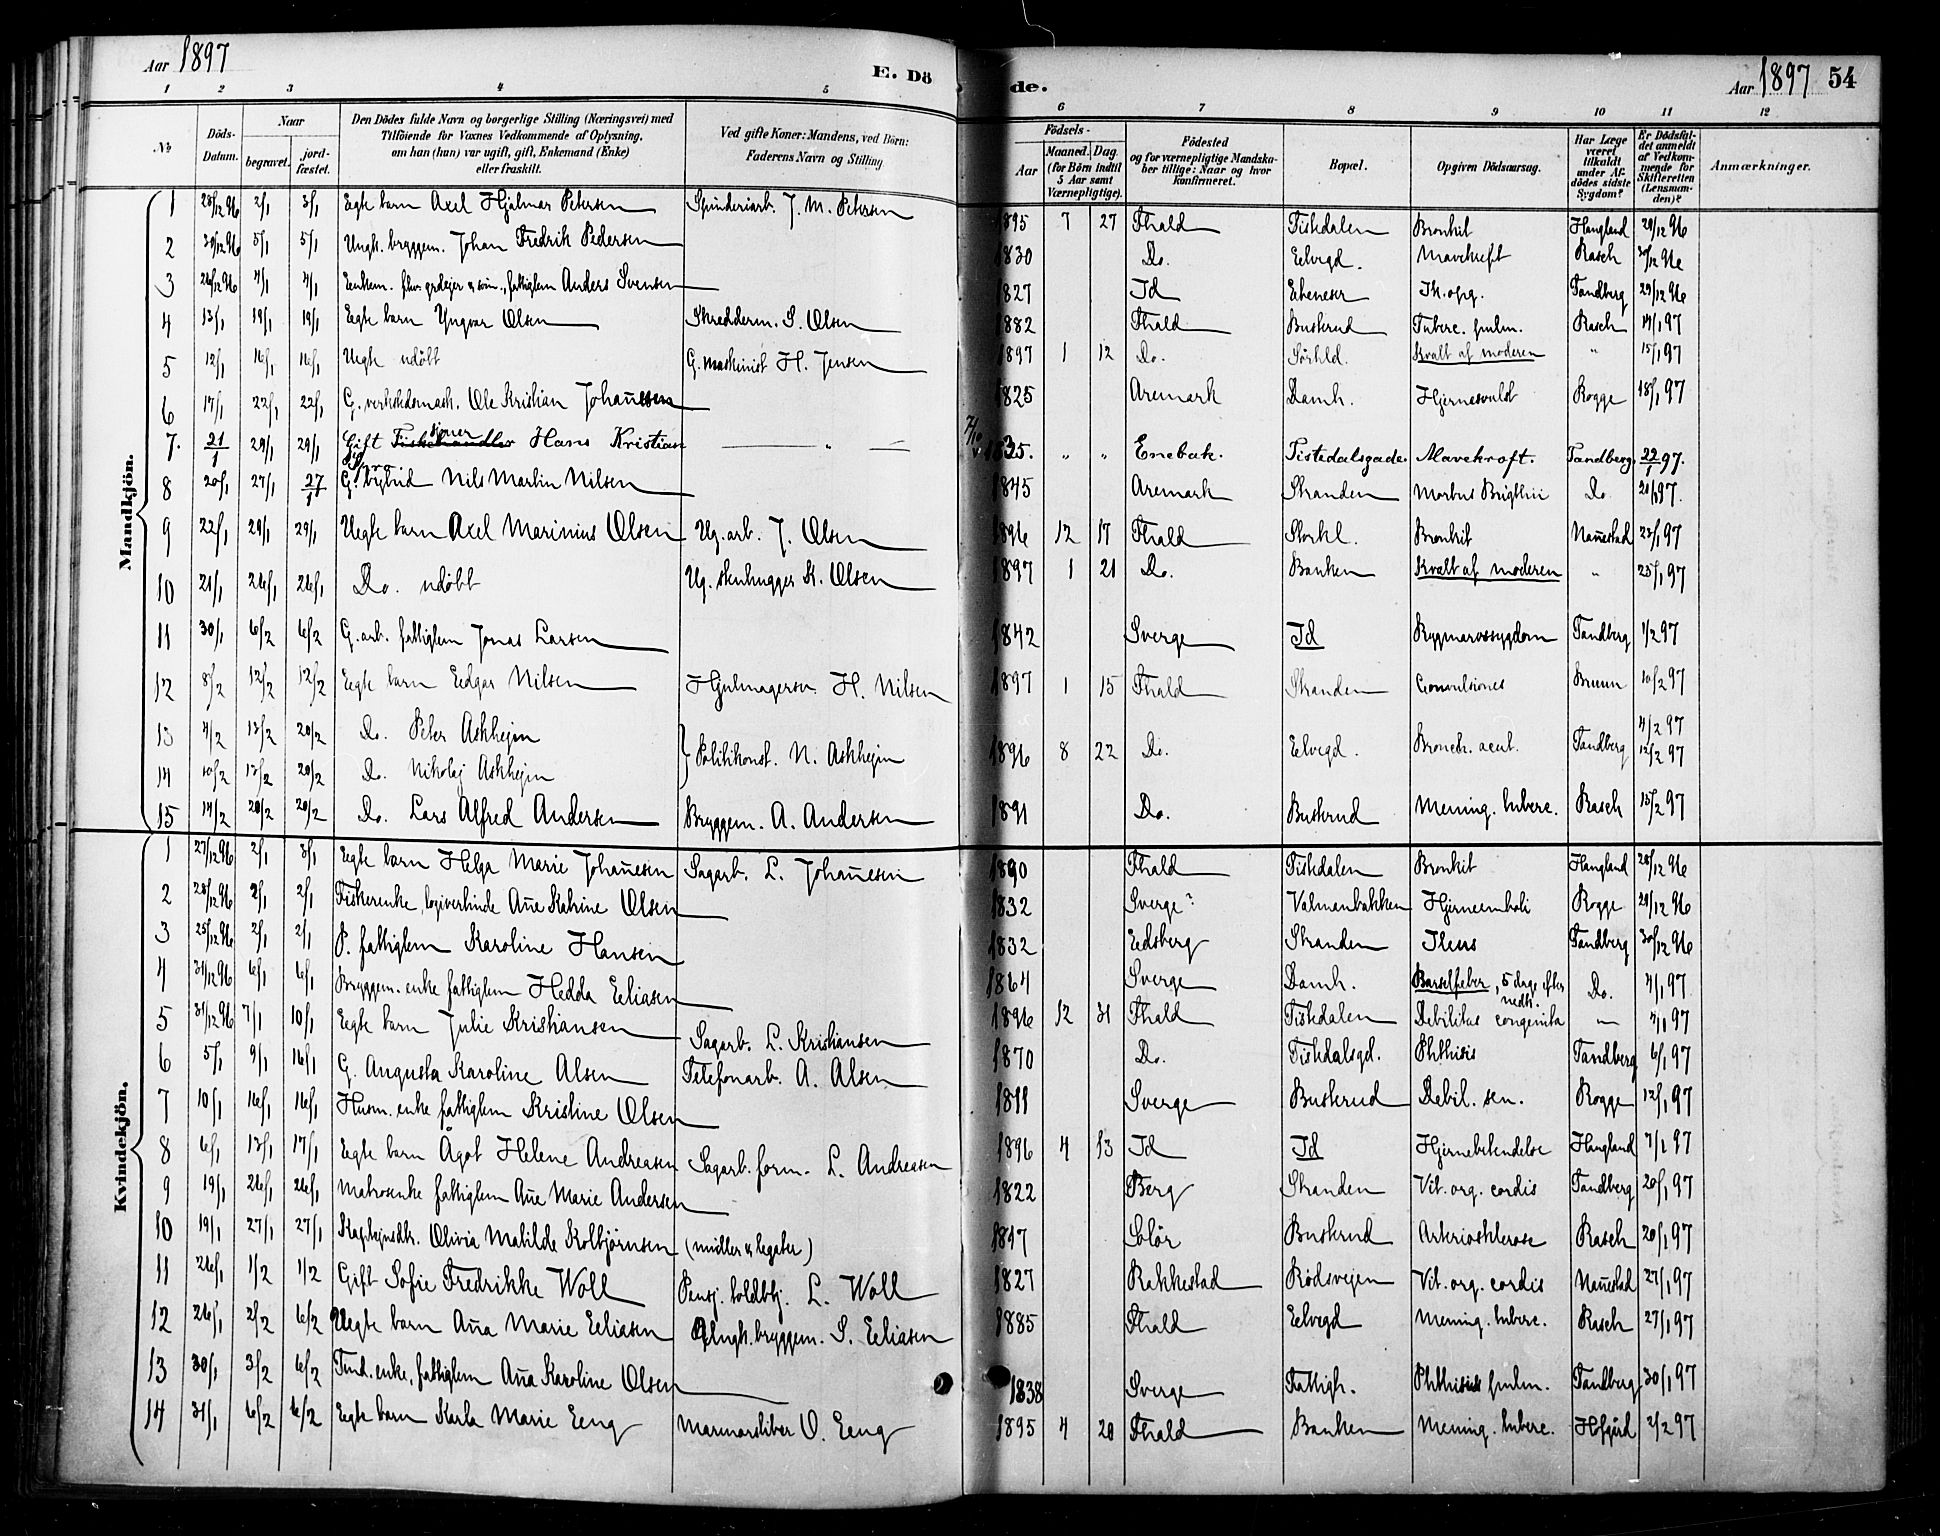 Aar 1897
E. Dö
de.
Aar 1897 54
1 2 3 4 5 6 7 8 9 10 11 12
No
Döds-Datum.
Naar
begravet.
jord-fæstet.
Den Dödes fulde Navn og borgerlige Stilling (Næringsvei) med
Tilföiende for Voxnes Vedkommende af Oplysning,
om han (hun) var ugift, gift, Enkemand (Enke)
eller fraskilt.
Ved gifte Koner: Mandens, ved Börn:
Faderens Navn og Stilling.
Födsels-
Aar
Maaned. Dag.
(for Börn indtil
5 Aar samt
Værnepligtige).
Födested
og for værnepligtige Mandska-
ber tillige: Naar og hvor
konfirmeret.
Bopæl.
Opgiven Dödsaarsag.
Har Læge
været
tilkaldt
under Af-
dödes sidste
Sygdom?
Er Dödsfal-
det anmeldt
af Vedkom-
mende for
Skifteretten
(Lensman-
den)?
Anmærkninger.
Mandkjön.
1 28/12 96 2/1 3/1 Egte barn Axel Hjalmar Petersen Spinderiarb. J. M. Petersen 1895 7 27 Fhald Tistedalen Bronkit Hangland 29/12 96
2 30/12 96 5/1 5/1 Ungk. bryggem. Johan Fredrik Pedersen 1830 Do. Elvegd. Mavekreft Rasch 30/12 96
3 26/12 96 4/1 4/1 Enkem. fattiglem Anders Svensen 1827 Id Ebeneser Tandberg 29/12 96
4 13/1 19/1 19/1 Egte barn Yngvar Olsen Skredderm. S. Olsen 1882 Fhald Buskrud Tuberc. pulm. Rasch 14/1 97
5 12/1 16/1 16/1 Uegte udöbt G. maskinist H. Jensen 1897 1 12 Do. Sörhld. Kvalt af moderen " 15/1 97
6 17/1 22/1 22/1 G. verkstedsmask. Ole Kristian Johanesen 1825 Aremark Damh. Hjernesvulst Rogge 18/1 97
7. 21/1 29/1 29/1 Gift Fiskehandler Hans Kristian " 1835. " " Enebak. Tistedalsgade. Mavekreft. Tandberg. 22/1 97.
8 20/1 27/1 27/1 G. bybud Nils Martin Nilsen 1845 Aremark Stranden Morbus Brightii Do. 21/1 97.
9 22/1 29/1 29/1 Uegte barn Axel Marinius Olsen Ug. arb. J. Olsen 1896 12 17 Fhald Storkl. Bronkit Nanestad 23/1 97
10 21/1 26/1 26/1 Do. udöbt Ug. stenhugger K. Olsen 1897 1 21 Do. Banken Kvalt af moderen " 25/1 97
11 30/1 6/2 6/2 G. arb. fattiglem Jonas Larsen 1842 Sverge Id Rygmarvssygdom Tandberg 1/2 97
12 8/2 12/2 12/2 Egte barn Edgar Nilsen Hjulmagersv. H. Nilsen 1897 1 15 Fhald Stranden Convulsiones Bruun 10/2 97
13 4/2 13/2 20/2 Do. Peter Askhejm 4/2 97
14 10/2 13/2 20/2 Do. Nikolaj Askhejm } Politikonst. N. Askhejm 1896 8 22 Do. Elvegd. Bronch. acut. Tandberg 12/2 97
15 14/2 20/2 20/2 Do. Lars Alfred Andersen Bryggem. A. Andersen 1891 Do. Buskrud Mening. tuberc. Rasch 15/2 97
Kvindekjön.
1 27/12 96 2/1 3/1 Egte barn Helga Marie Johanesen Sagarb. L. Johanesen 1890 Fhald Tistedalen Bronkit Hangland 28/12 96
2 28/12 96 2/1 2/1 Fiskerenke, logiverthinde Ane Katrine Olsen 1832 Sverge? Valmanbakken Hjerneemboli Rogge 29/12 96
3 25/12 96 2/1 2/1 P. fattiglem Karoline Hansen 1832 Edsberg Stranden Ileus Tandberg 30/12 96
4 31/12 96 6/1 6/1 Bryggem. enke fattiglem Hedda Eliasen 1864 Sverge Damh. Barselfeber, 5 dage efter nedk. Do. 4/1 97
5 31/12 96 7/1 10/1 Egte barn Julie Kristiansen Sagarb. L. Kristiansen 1896 12 31 Fhald Tistedalen Debilitas congenita — 4/1 97
6 5/1 9/1 16/1 G. Augusta Karoline Alsen Telefonarb. A. Alsen 1870 Do. Tistedalsgd. Phthisis Tandberg 6/1 97
7 10/1 16/1 16/1 Husm. enke fattiglem Kristine Olsen 1811 Sverge Buskrud Debil. sen. Rogge 12/1 97
8 6/1 13/1 17/1 Egte barn Ågot Helene Andreasen Sagarb. form. L. Andreasen 1896 4 13 Id Id Hjernebetendelse Hangland 7/1 97
9 19/1 26/1 26/1 Matrosenke fattiglem Ane Marie Andersen 1822 Berg Stranden Vit. org. cordis Tandberg 20/1 97
10 19/1 27/1 27/1 Kaptejnsdtr. Olivia Matilde Kolbjörnsen (midler & legater) 1817 Solör Buskrud Arteriosklerose Rasch 20/1 97
11 26/1 1/2 1/2 Gift Sofie Fredrikke Woll Pensj. toldbtj. L. Woll 1827 Rakkestad Rödsvejen Vit. org. cordis Nanestad 27/1 97
12 26/1 2/2 6/2 Uegte barn Ana Marie Eliasen Ungk. bryggem. S. Eliasen 1885 Fhald Elvegd Mening. tuberc. Rasch 27/1 97
13 30/1 3/2 6/2 enke, fattiglem Ana Karoline Olsen 1838 Sverge Fattigh. Phthisis pulm. Tandberg 30/1 97
14 31/1 6/2 6/2 Egte barn Karla Marie Eng Marmorsliber O. Eng 1895 4 20 Fhald Banken Mening. tuberc. Hofgård 2/2 97